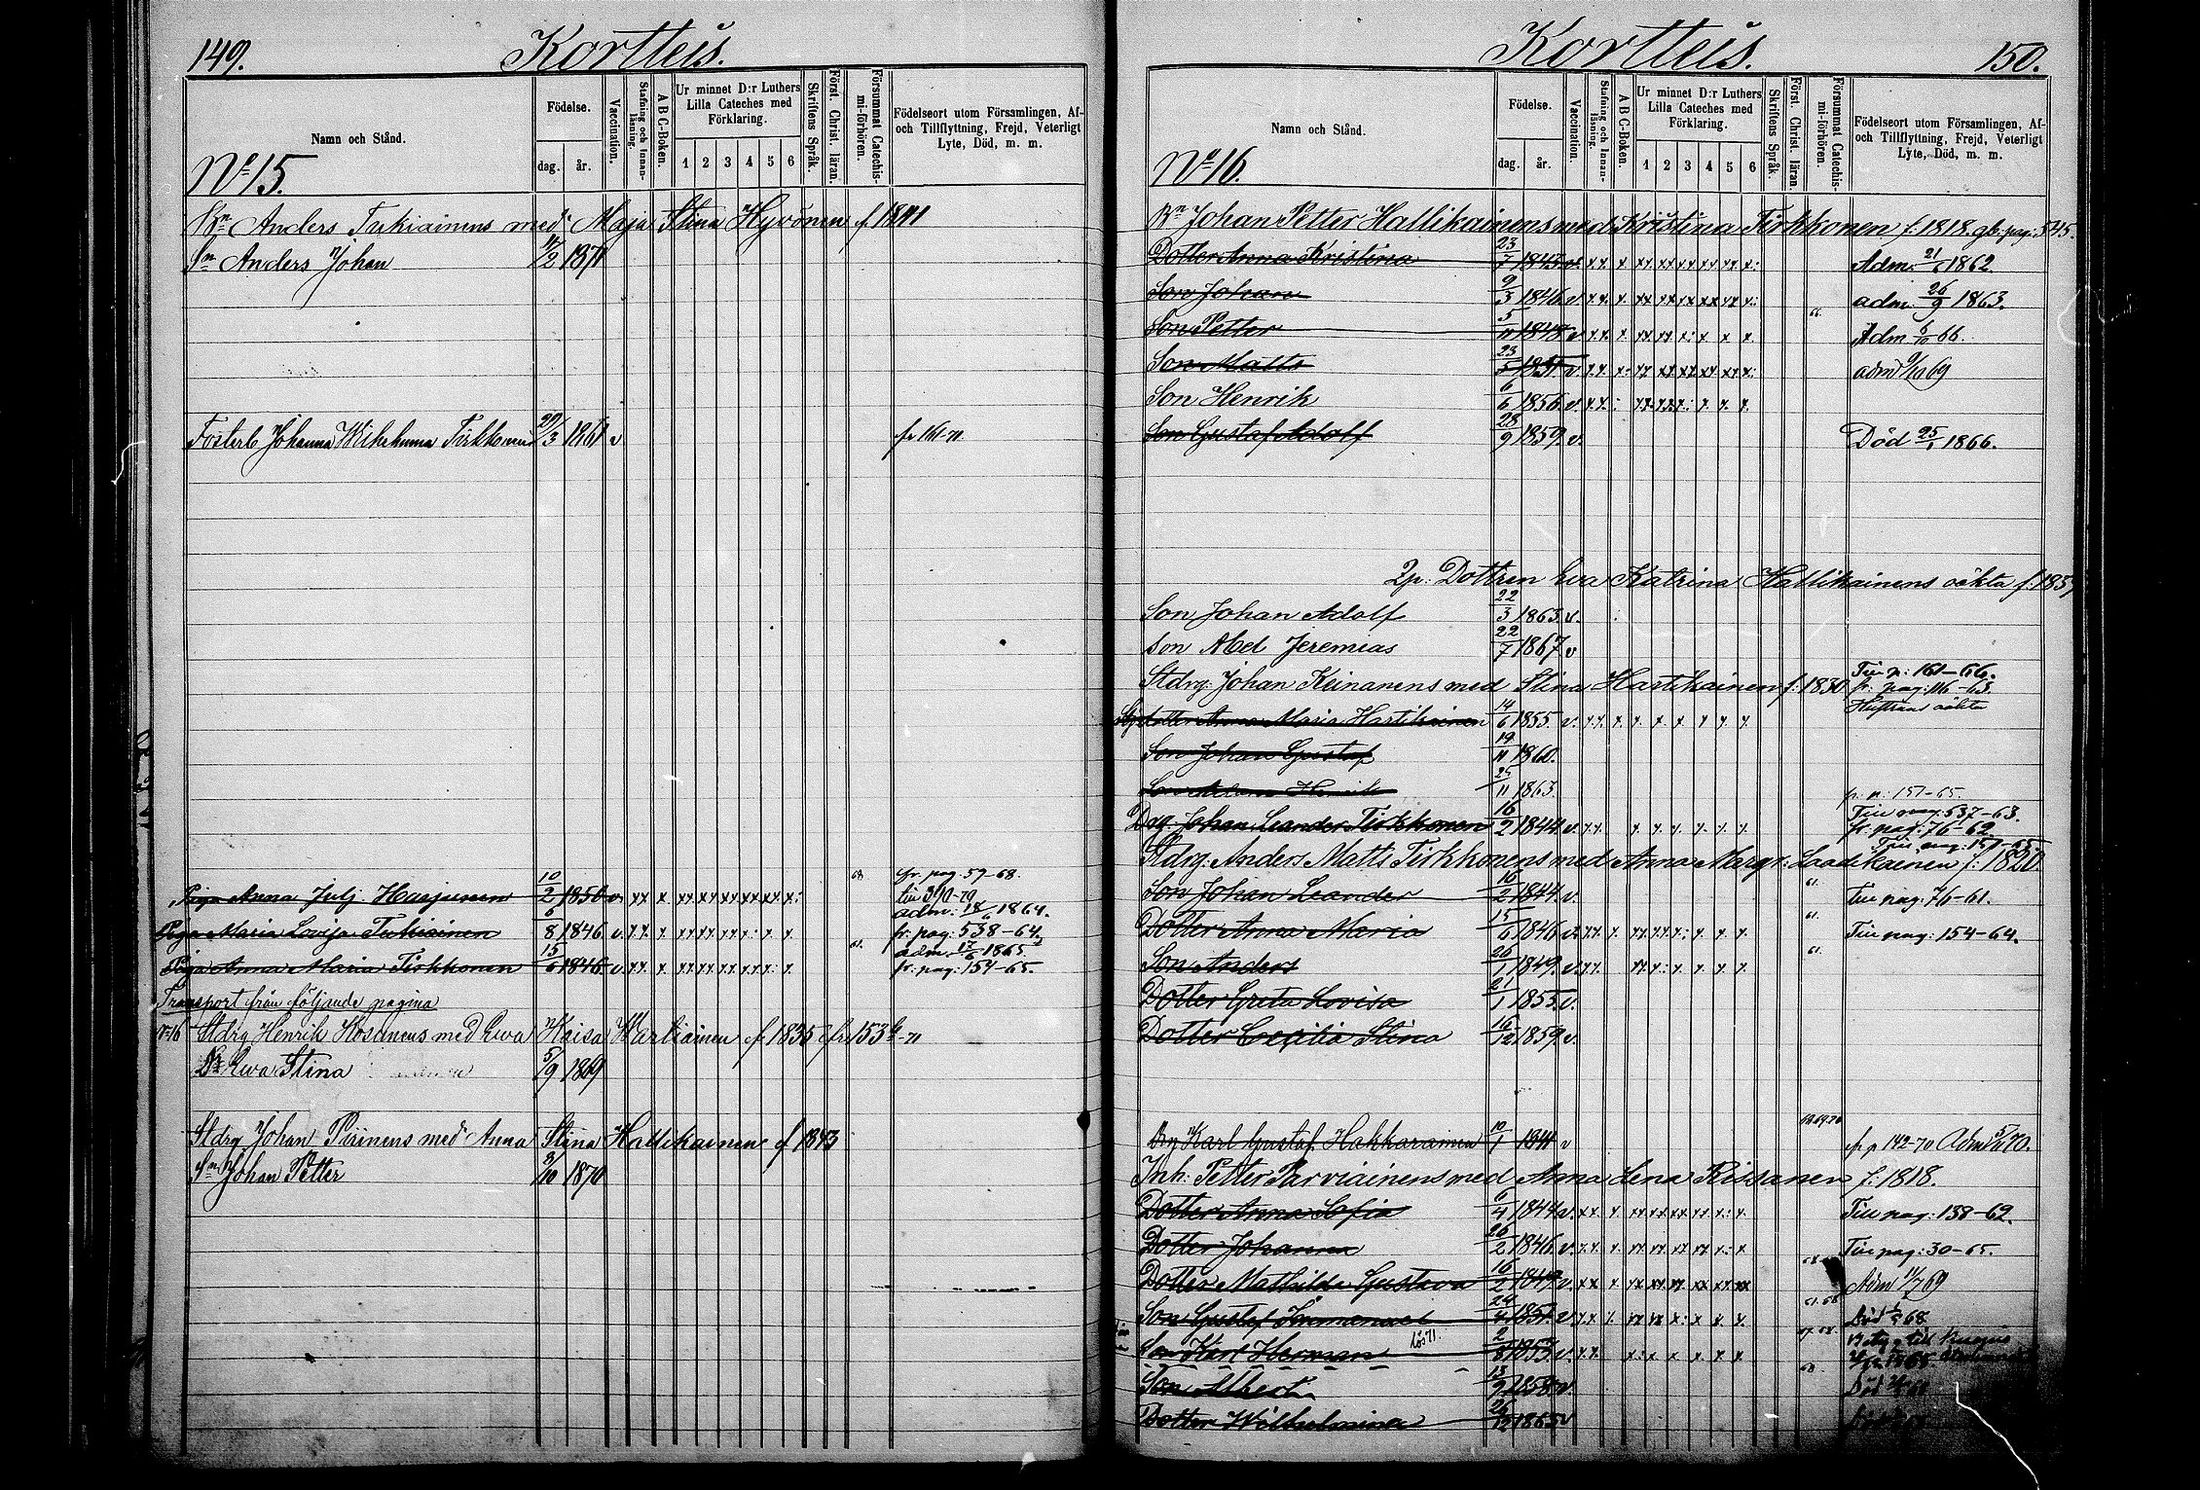 149. Kortteis.
Namn och Stånd.
Födelse.
dag. år.
Vaccination.
Stafning och Innanläsning.
A B C-Boken.
Ur minnet D:r Luthers Lilla Cateches med Förklaring.
1 2 3 4 5 6
Skriftens Språk.
Först. Christ. läran.
Försummat Catechismi-förhören.
Födelseort utom Församlingen, Af- och Tillflyttning, Frejd, Veterligt Lyte, Död, m. m.
No 15.
Bn Anders Tukiainens med Maja Stina Hyvönen f. 1841
Sn Anders Johan 17/2 1871
Fosterb Johanna Wilhelmina Tirkkonen 29/3 1861 v fr 161-71
Piga Anna Julj. Harjunen 10/2 1850 v. xx x. 68. fr. pag. 59-68.
adm: 18/6 1864.
Piga Maria Lovisa Tukiainen 6/8 1846 v. fr. pag: 538-64.
adm. 17/6 1865
Piga Anna Maria Tirkkonen 15/6 1846 v. 61. fr. pag: 154-65.
Transport från följande pagina
N:16 Stdrg Henrik Kosunens med Ewa Kaisa Wartiainen f 1835 fr 153 -71
Dr Ewa Stina 5/9 1869
Stdrg Johan Piirinens med Anna Stina Hallikainen f 1843
Sn Johan Petter 8/10 1870
Kortteis. 150.
Namn och Stånd.
Födelse.
dag. år.
Vaccination.
Stafning och Innanläsning.
A B C-Boken.
Ur minnet D:r Luthers Lilla Cateches med Förklaring.
1 2 3 4 5 6
Skriftens Språk.
Först. Christ. läran.
Försummat Catechismi-förhören.
Födelseort utom Församlingen, Af- och Tillflyttning, Frejd, Veterligt Lyte, Död, m. m.
No 16.
Bn Johan Petter Hallikainens med Kristina Tirkkonen f. 1818. gb. pag: 545.
Dotter Anna Kristina 23/7 1843 v. Adm. 21/6 1862.
Son Johan 9/3 1846 v. adm. 26/9 1863.
Son Petter 5/11 1848 v. 66. Adm 6/10 66.
Son Matts 23/5 1851 v. adm 9/10 69
Son Henrik 6/6 1856 v.
Son Gustaf Adolf 28/9 1859 v. Död 25/1 1866.
Dottren Eva Katrina Hallikainens oäkta f. 1837
Son Johan Adolf 22/3 1863 v.
Son Abel Jeremias 22/7 1867 v
Till p: 161-66.
Stdrg: Johan Keinanens med Stina Hartikainen f: 1830 fr: pag: 116-63.
Hustrun oäkta
Dotter Anna Maria Hartikainen 14/6 1855 v.
Son Johan Gustaf 19/11 1860.
Son Henrik 25/11 1863.
fr. p: 151-65.
Till pag: 537-63.
Drg. Johan Leander Tirkkonen 16/2 1844 v. fr. pag: 76-62.
Stdrg: Anders Matts Tirkkonens med Anna Margr: Laadikainen f: 1820.
Son Johan Leander 16/2 1844 v. 61. Till pag: 76-61.
Dotter Anna Maria 15/6 1846 v. 61. Till pag: 154-64.
Son Anders 20/1 1849 v. 61.
Dotter Greta Lovisa 21/1 1855 v.
Dotter Cecilia Stina 16/12 1859 v.
Drg Karl Gustaf Hakkarainen 10/1 1841 v fr p 142-70
Inh: Petter Parviainens med Anna Lena Rissanen f: 1818.
Dotter Anna Sofia 6/4 1844 v. Till pag: 138-62.
Dotter Johanna 26/2 1846 v. Till pag: 30-65.
Dotter Mathilda Gustava 16/2 1849 v. Adm 11/7 69
Son Gustaf Immanuel 24/4 1851 v. 61.68 Död 68.
Son Karl Herman 2/8 1853 v. 67.68.
Son Albert 13/9 1858 v.
Dotter Wilhelmina 26/12 1865 v